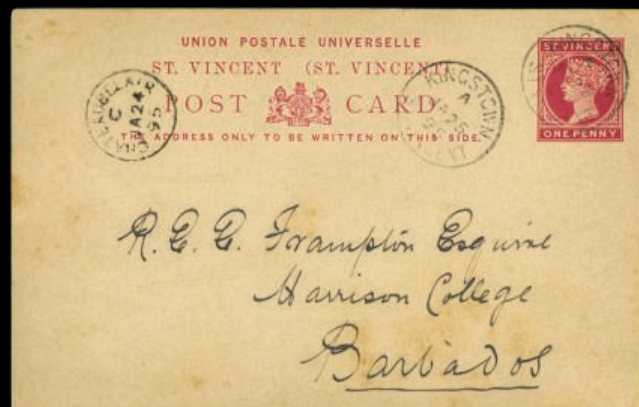 UNION POSTALE UNIVERSELLE
ST. VINCENT (ST. VINCENT)
POST CARD
THE ADDRESS ONLY TO BE WRITTEN ON THIS SIDE.
ST VINCENT
ONE PENNY
KINGSTOWN
A
95
C
A 24
95
R. E. E. Frampton Esquire
Harrison College
Barbados